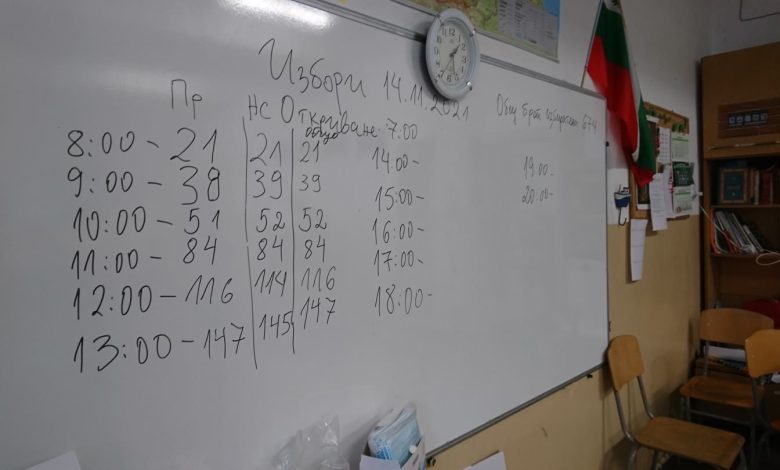 Избори 14.11.2021
Общ брой избиратели 674
Пр НС Откриване 7:00
общо
8:00 - 21 21 21
9:00 - 38 39 39
10:00 - 51 52 52
11:00 - 84 84 84
12:00 - 116 114 116
13:00 - 147 145 147
14:00 -
15:00 -
16:00 -
17:00 -
18:00 -
19:00 -
20:00 -